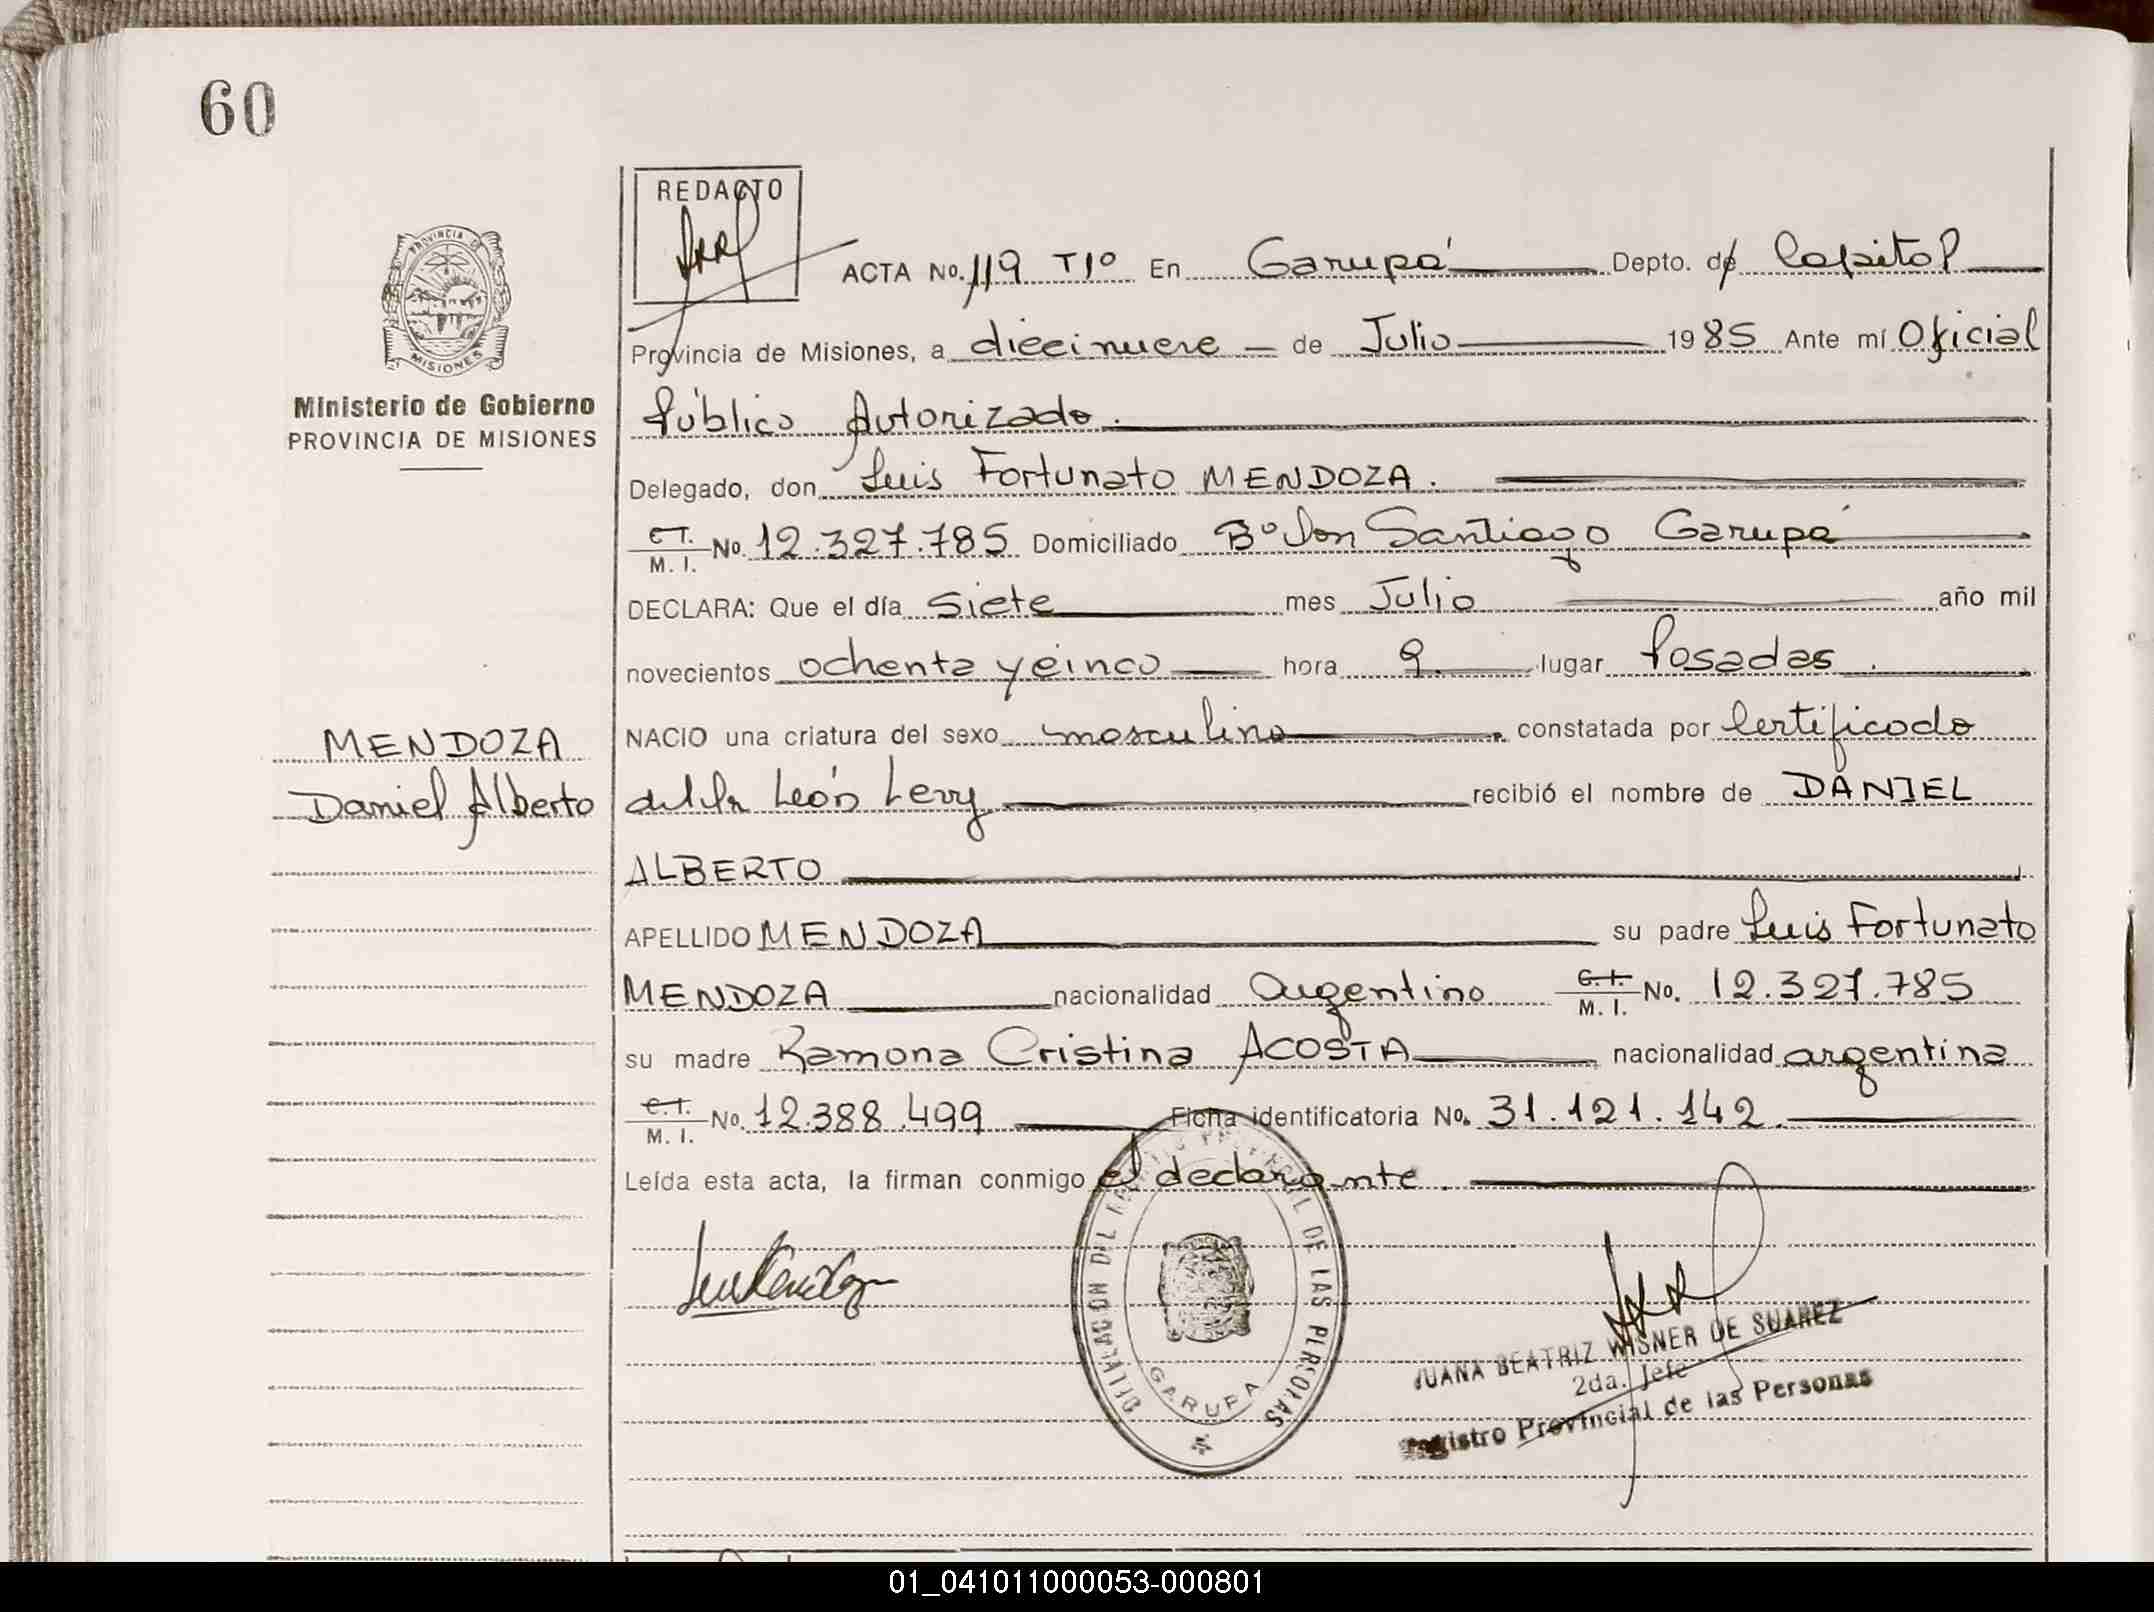 60
REDACTO
PROVINCIA DE
MISIONES
Ministerio de Gobierno
PROVINCIA DE MISIONES
ACTA No. 119 T1º En Garupá Depto. de Capital
Provincia de Misiones, a diecinueve de Julio 1985 Ante mí Oficial
Público Autorizado.
Delegado, don Luis Fortunato MENDOZA.
C.I. M. I. No. 12.327.785 Domiciliado Bº Don Santiago Garupá
DECLARA: Que el día siete mes Julio año mil
novecientos ochenta y cinco hora 9. lugar Posadas.
NACIO una criatura del sexo masculino constatada por Certificado
del Dr León Levy recibió el nombre de DANIEL
ALBERTO
APELLIDO MENDOZA su padre Luis Fortunato
MENDOZA nacionalidad argentino C.I. M. I. No. 12.327.785
su madre Ramona Cristina ACOSTA nacionalidad argentina
C.I. M. I. No. 12.388.499 Ficha identificatoria No. 31.121.142.
Leída esta acta, la firman conmigo el declarante.
MENDOZA
Daniel Alberto
DELEGACION DEL REGISTRO PROVINCIAL DE LAS PERSONAS
GARUPA
JUANA BEATRIZ WISNER DE SUAREZ
2da. Jefe
Registro Provincial de las Personas
01_041011000053-000801